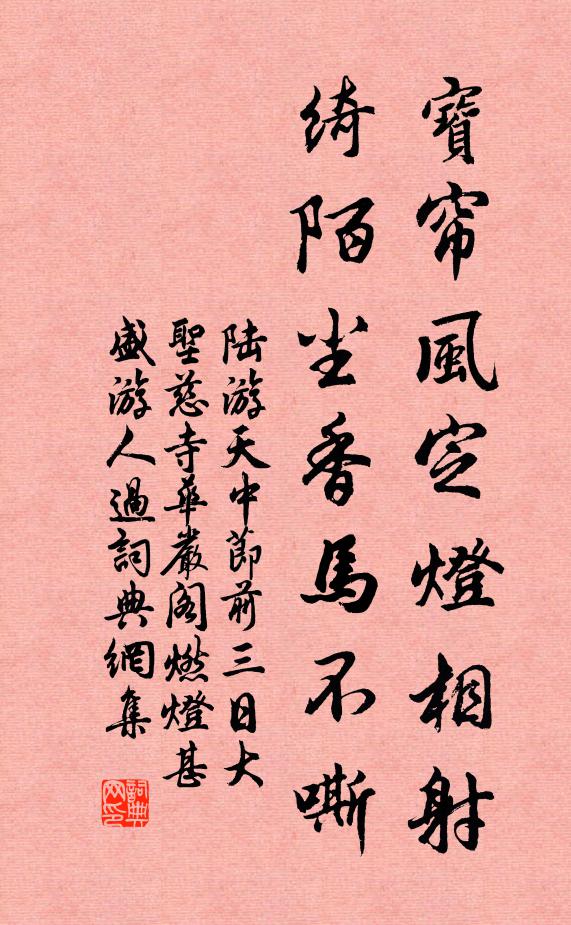 寶帘風定燈相射
綺陌塵香馬不嘶
陸游天中節前三日大
聖慈寺華嚴閣燃燈甚
盛游人過詞典網集
詞典
网印